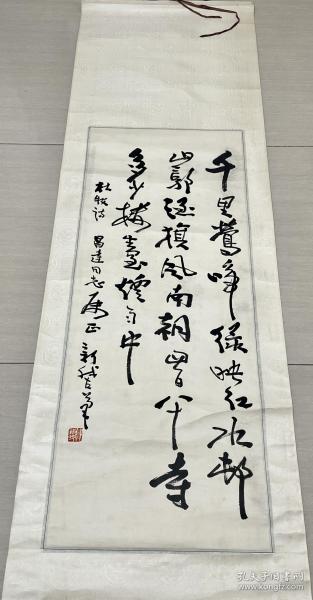 千里莺啼绿映红水邨
山郭酒旗风南朝四百八十寺
多少楼台烟雨中
杜牧诗 昌达同志属正
孔夫子旧书网
www.kongfz.com